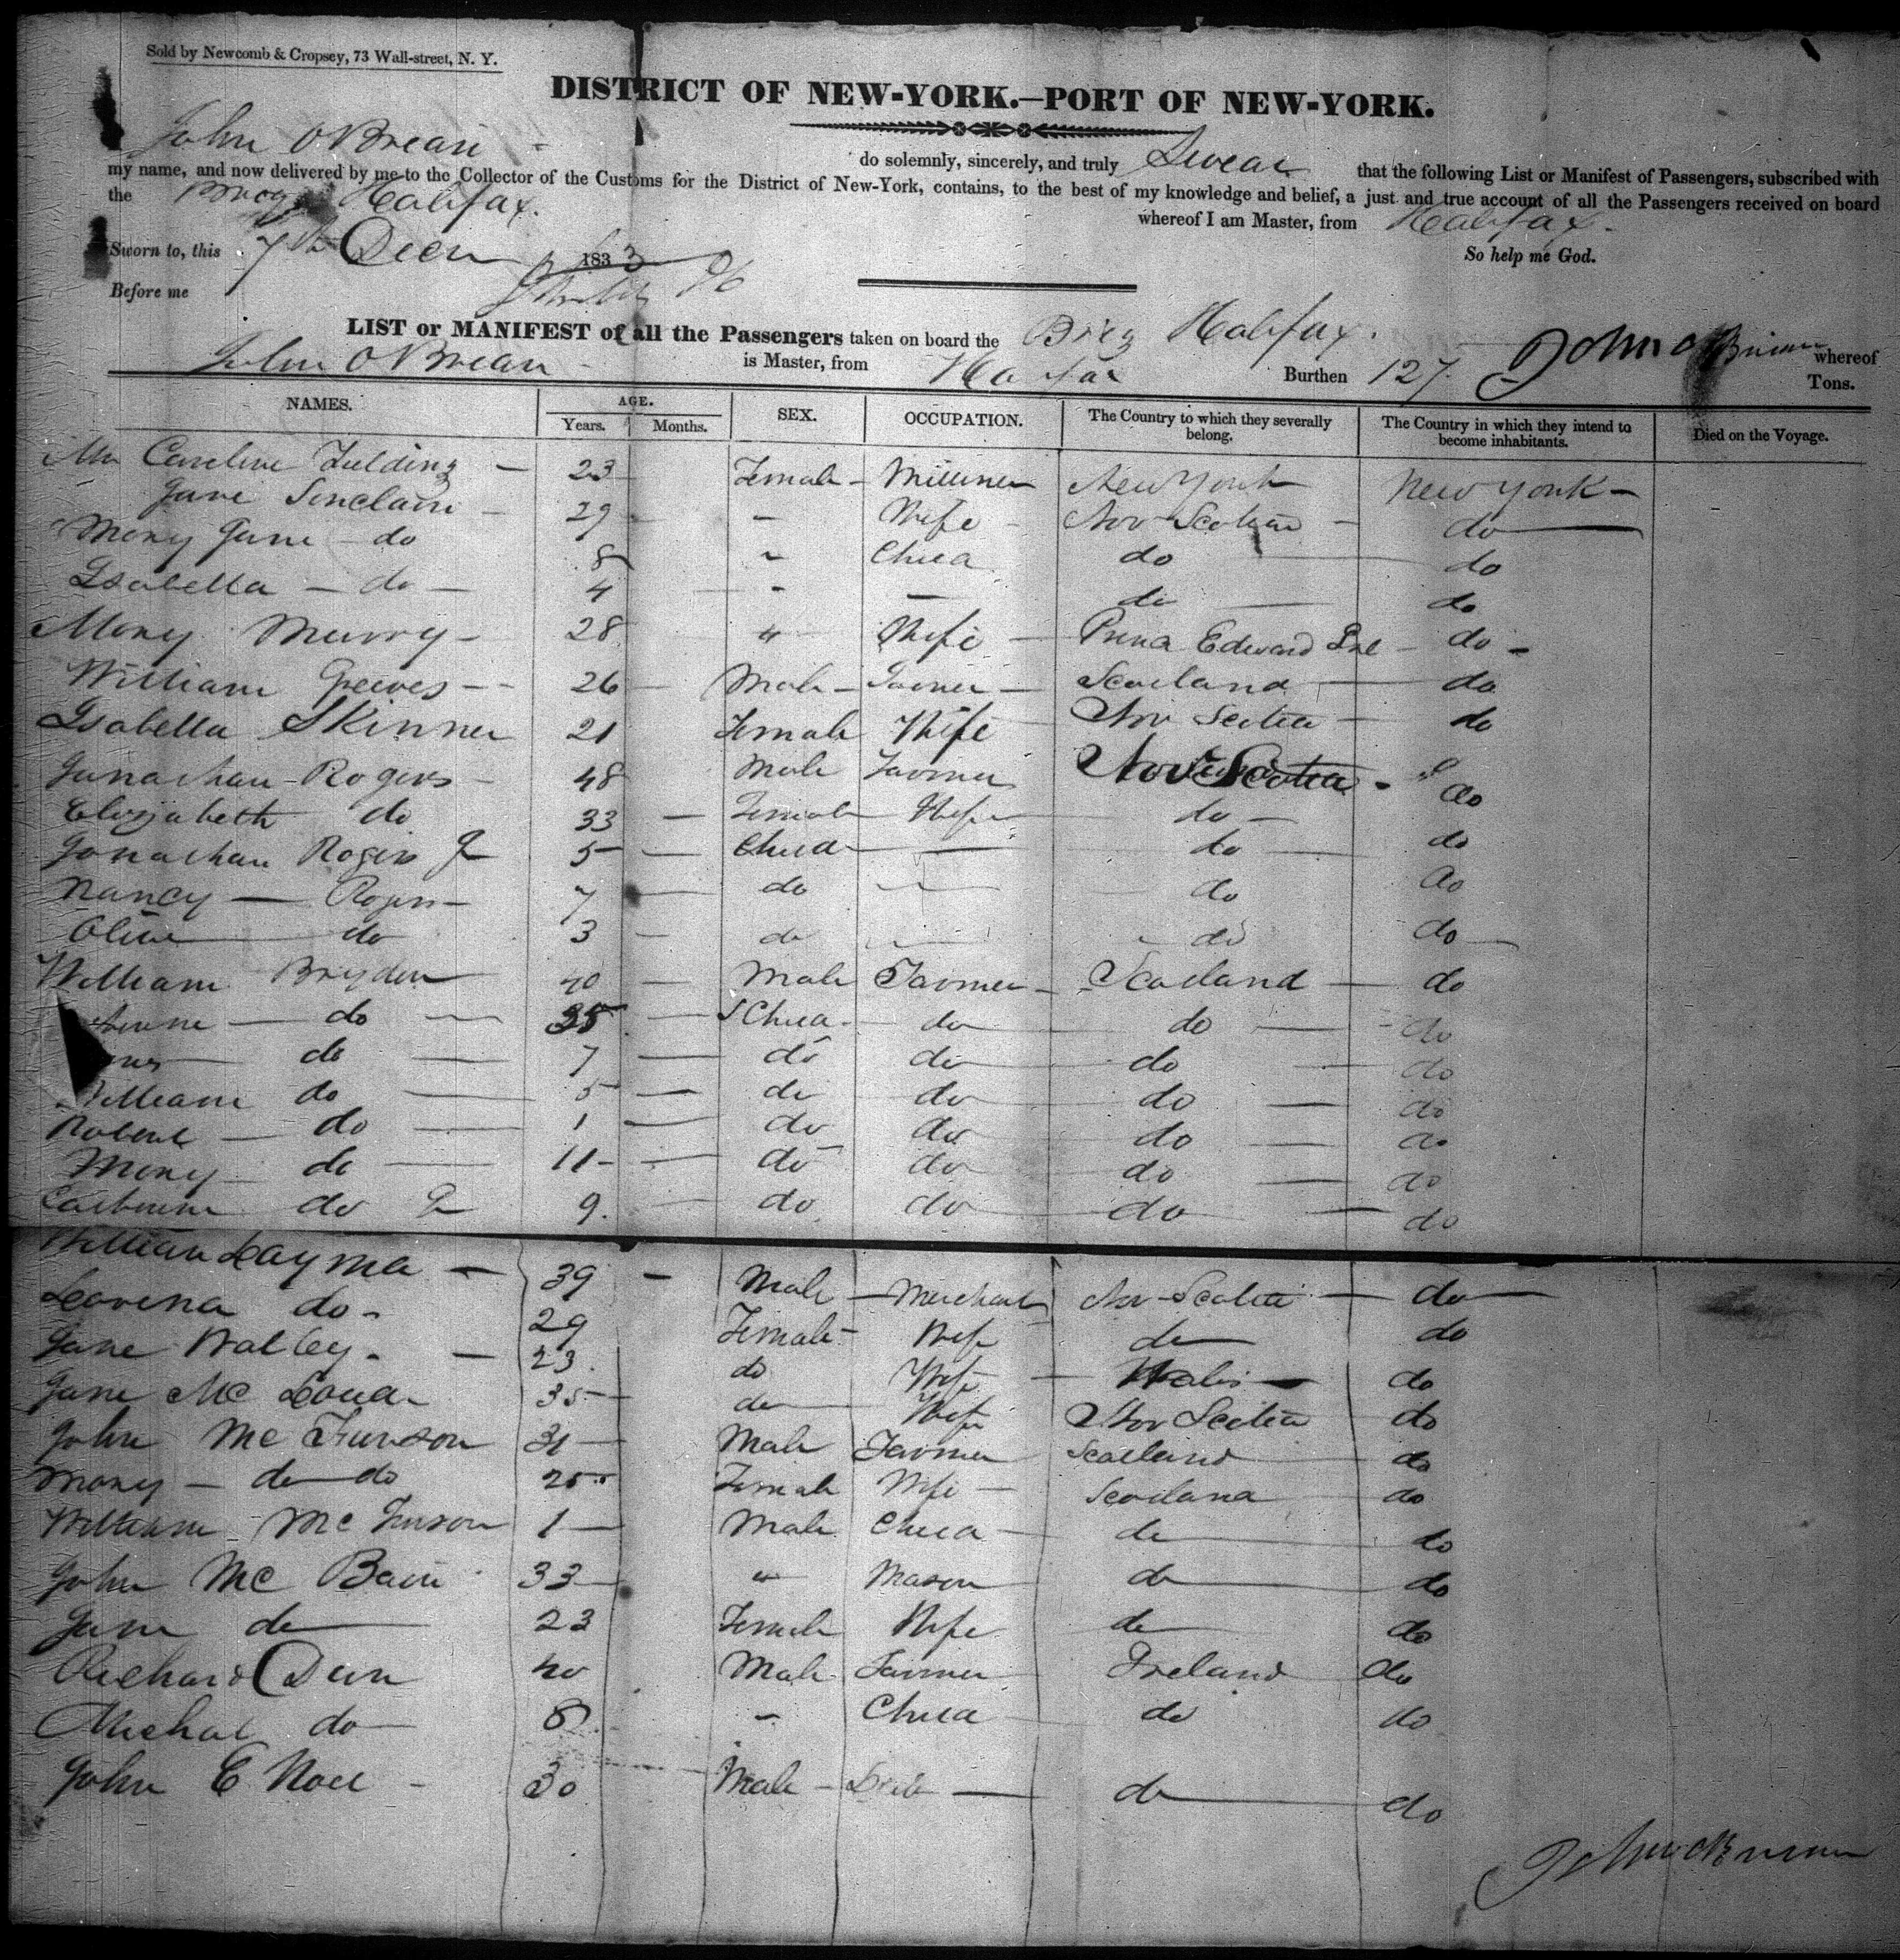 Sold by Newcomb & Cropsey, 73 Wall-street, N. Y.
DISTRICT OF NEW-YORK.—PORT OF NEW-YORK.
John OBrean do solemnly, sincerely, and truly Swear that the following List or Manifest of Passengers, subscribed with
my name, and now delivered by me to the Collector of the Customs for the District of New-York, contains, to the best of my knowledge and belief, a just and true account of all the Passengers received on board
the Brig Halifax. whereof I am Master, from Halifax.
Sworn to, this 7th Decm 1833 So help me God.
Before me
LIST or MANIFEST of all the Passengers taken on board the Brig Halifax. whereof
John OBrean is Master, from Halifax Burthen 127 Tons.
NAMES. AGE. Years. Months. SEX. OCCUPATION. The Country to which they severally belong. The Country in which they intend to become inhabitants. Died on the Voyage.
Caroline 23 Female Milliner New York New York
Jane Sinclair 29 Wife Nov Scotia do
Mary Jane do 8 do do
Isabella do 4 do do
Mary Murry 28 " Wife Edward do
William Greeves 26 Male Farmer Scotland do
Isabella Skinner 21 Female Wife Nov Scotia do
Rogers 48 Male Farmer Nov Scotia do
Elizabeth do 33 Female Wife do do
Jonathan Rogers Jr 5 Child do do
Nancy Rogers 7 do do do
Olive do 3 do do do
William Bryden 40 Male Farmer Scotland do
do 35 Child do do do
do 7 do do do do
William do 5 do do do do
Robert do 1 do do do do
Mary do 11 do do do do
do Jr 9. do do do do
William Layma 39 Male Merchant Nov Scotia do
Lovena do 29 Female Wife do do
Jane 23. do Wife Wales do
Jane Mc 35 do Wife Nov Scotia do
John Mc 31 Male Farmer Scotland do
Mary do do 25 Female Wife Scotland do
William Mc 1 Male Child do do
John Mc Bain 33 " Mason do do
Jane do 23 Female Wife do do
Richard Dun 40 Male Farmer Ireland do
Michal do 8 Child do do
John 30 Male do do